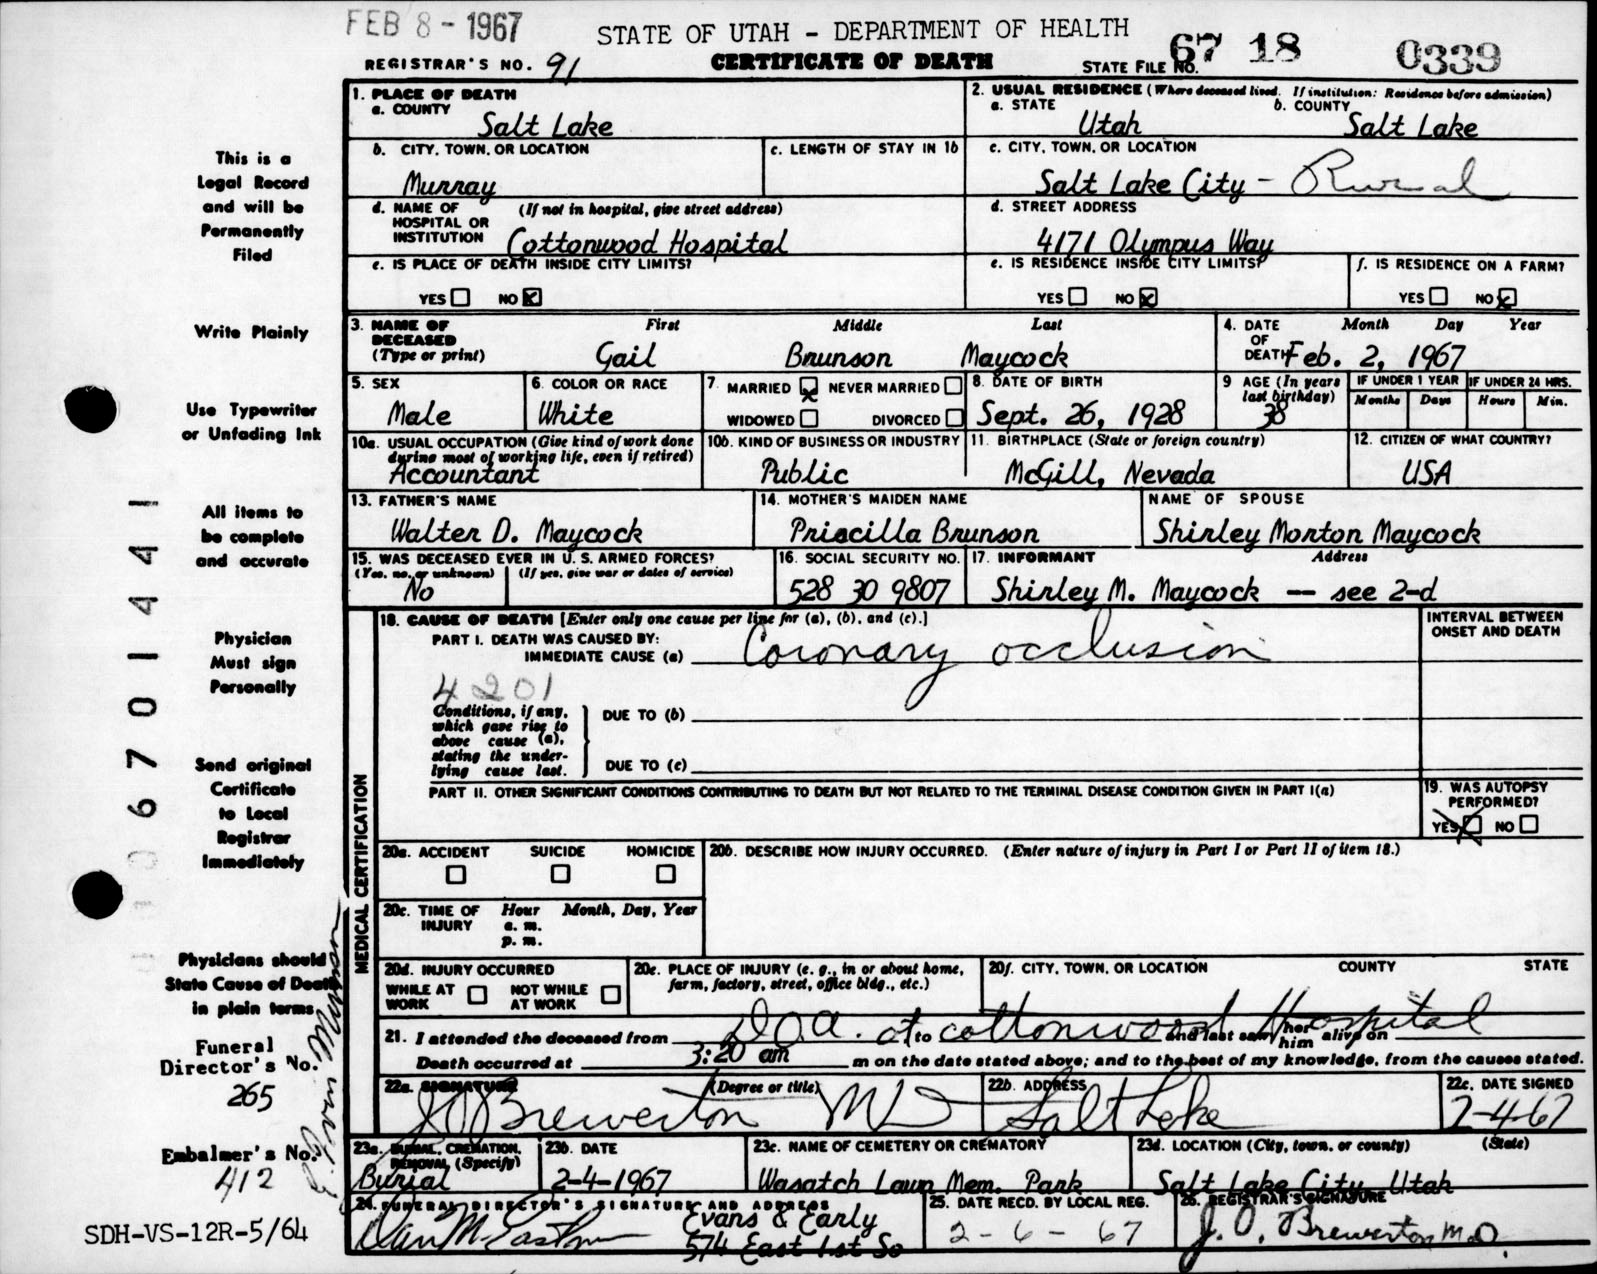 FEB 8 - 1967
STATE OF UTAH - DEPARTMENT OF HEALTH
REGISTRAR'S NO. 91
CERTIFICATE OF DEATH
STATE FILE NO. 67 18 0339
1. PLACE OF DEATH
a. COUNTY
Salt Lake
2. USUAL RESIDENCE (Where deceased lived. If institution: Residence before admission)
a. STATE
Utah
b. COUNTY
Salt Lake
b. CITY, TOWN, OR LOCATION
Murray
c. LENGTH OF STAY IN 1b
c. CITY, TOWN, OR LOCATION
Salt Lake City - Rural
d. NAME OF HOSPITAL OR INSTITUTION
(If not in hospital, give street address)
Cottonwood Hospital
d. STREET ADDRESS
4171 Olympus Way
e. IS PLACE OF DEATH INSIDE CITY LIMITS?
YES NO
e. IS RESIDENCE INSIDE CITY LIMITS?
YES NO
f. IS RESIDENCE ON A FARM?
YES NO
3. NAME OF DECEASED
(Type or print)
First Middle Last
Gail Brunson Maycock
4. DATE OF DEATH
Month Day Year
Feb. 2, 1967
5. SEX
Male
6. COLOR OR RACE
White
7. MARRIED NEVER MARRIED
WIDOWED DIVORCED
8. DATE OF BIRTH
Sept. 26, 1928
9 AGE (In years last birthday)
38
IF UNDER 1 YEAR
Months Days
IF UNDER 24 HRS.
Hours Min.
10a. USUAL OCCUPATION (Give kind of work done during most of working life, even if retired)
Accountant
10b. KIND OF BUSINESS OR INDUSTRY
Public
11. BIRTHPLACE (State or foreign country)
McGill, Nevada
12. CITIZEN OF WHAT COUNTRY?
USA
13. FATHER'S NAME
Walter D. Maycock
14. MOTHER'S MAIDEN NAME
Priscilla Brunson
NAME OF SPOUSE
Shirley Morton Maycock
15. WAS DECEASED EVER IN U. S. ARMED FORCES?
(Yes, no, or unknown) (If yes, give war or dates of service)
No
16. SOCIAL SECURITY NO.
528 30 9807
17. INFORMANT Address
Shirley M. Maycock — see 2-d
MEDICAL CERTIFICATION
18. CAUSE OF DEATH [Enter only one cause per line for (a), (b), and (c).]
PART I. DEATH WAS CAUSED BY:
IMMEDIATE CAUSE (a) Coronary occlusion
INTERVAL BETWEEN ONSET AND DEATH
4201
Conditions, if any, which gave rise to above cause (a), stating the underlying cause last.
DUE TO (b)
DUE TO (c)
PART II. OTHER SIGNIFICANT CONDITIONS CONTRIBUTING TO DEATH BUT NOT RELATED TO THE TERMINAL DISEASE CONDITION GIVEN IN PART I(a)
19. WAS AUTOPSY PERFORMED?
YES NO
20a. ACCIDENT SUICIDE HOMICIDE
20b. DESCRIBE HOW INJURY OCCURRED. (Enter nature of injury in Part I or Part II of item 18.)
20c. TIME OF INJURY
Hour Month, Day, Year
a. m.
p. m.
20d. INJURY OCCURRED
WHILE AT WORK NOT WHILE AT WORK
20e. PLACE OF INJURY (e. g., in or about home, farm, factory, street, office bldg., etc.)
20f. CITY, TOWN, OR LOCATION COUNTY STATE
D.O.A. at Cottonwood Hospital
21. I attended the deceased from to and last saw her him alive on
Death occurred at 3:20 am m on the date stated above; and to the best of my knowledge, from the causes stated.
22a. SIGNATURE (Degree or title)
J O Brewerton MD
22b. ADDRESS
Salt Lake
22c. DATE SIGNED
2-4-67
23a. BURIAL, CREMATION, REMOVAL (Specify)
Burial
23b. DATE
2-4-1967
23c. NAME OF CEMETERY OR CREMATORY
Wasatch Lawn Mem. Park
23d. LOCATION (City, town, or county) (State)
Salt Lake City, Utah
24. FUNERAL DIRECTOR'S SIGNATURE AND ADDRESS
Evans & Early
574 East 1st So
25. DATE RECD. BY LOCAL REG.
2-6-67
26. REGISTRAR'S SIGNATURE
J. O. Brewerton M.D.
This is a
Legal Record
and will be
Permanently
Filed
Write Plainly
Use Typewriter
or Unfading Ink
All items to
be complete
and accurate
Physician
Must sign
Personally
Send original
Certificate
to Local
Registrar
Immediately
Physicians should
State Cause of Death
in plain terms
Funeral
Director's No.
265
Embalmer's No.
412
SDH-VS-12R-5/64